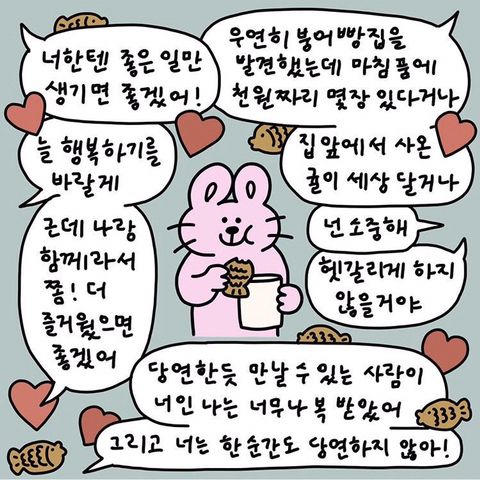 너한텐 좋은 일만
생기면 좋겠어!
우연히 붕어빵집을
발견했는데 마침 품에
천원짜리 몇장 있다거나
늘 행복하기를
바랄게
집 앞에서 사온
귤이 세상 달거나
근데 나랑
함께라서
쫌! 더
즐거웠으면
좋겠어
넌 소중해
헷갈리게 하지
않을거야
당연한듯 만날 수 있는 사람이
너인 나는 너무나 복 받았어
그리고 너는 한순간도 당연하지 않아!